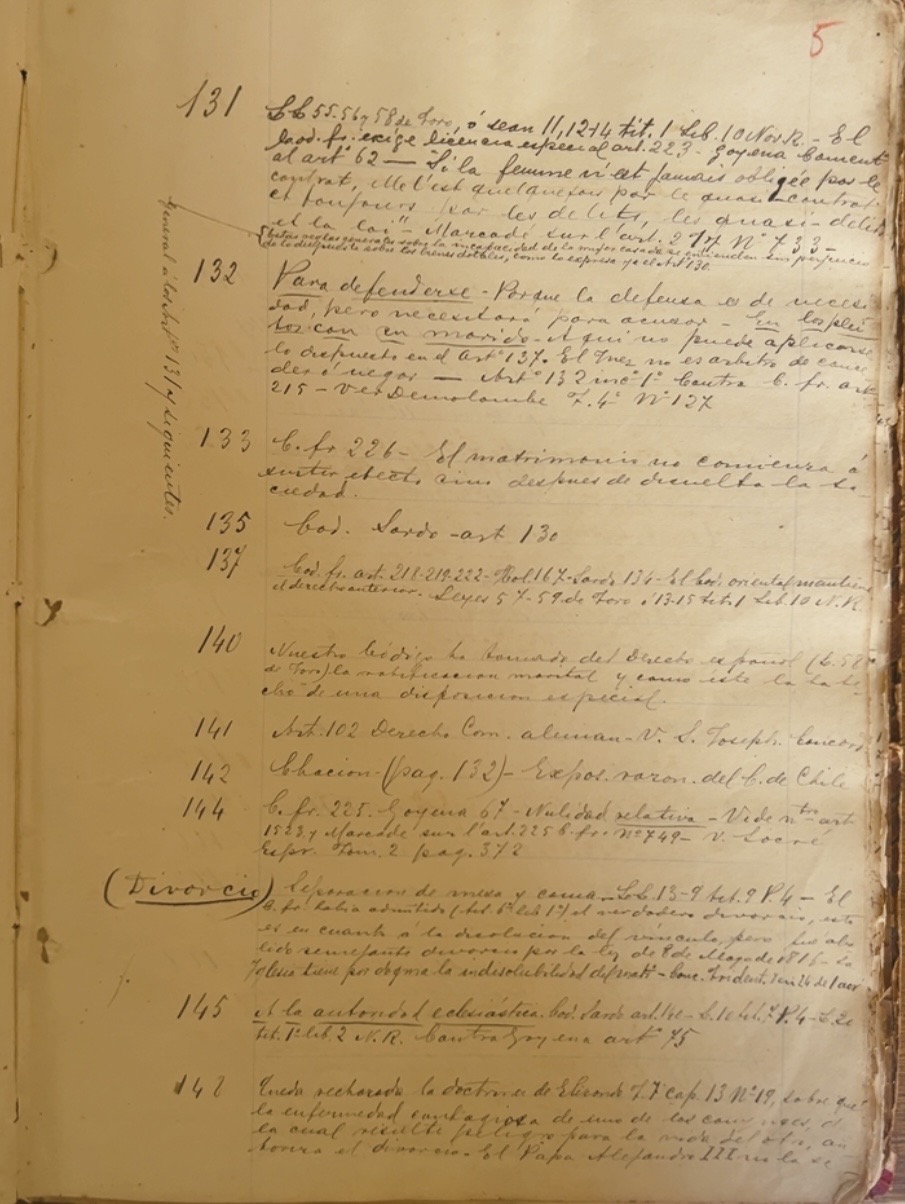 5
131 LL 55. 56 y 58 de Toro, ó sean 11, 12 y 14 tít. 1 Lib. 10 Nov. R. - El
Cod. fr. exige licencia especial art. 223 - Goyena Coment.
al art° 62 — "Si la femme n'est jamais obligée par le
contrat, elle l'est quelquefois par le quasi-contrat
et toujours par les delits, les quasi-delits
et la loi" - Marcadé sur l'art. 217 N° 733 -
Estas reglas generales sobre la incapacidad de la mujer casada se entienden sin perjuicio
de lo dispuesto sobre los bienes dotales, como lo expresa ya el Art° 130.
General á los Arts 131 y siguientes.
132 Para defenderse - Porque la defensa es de necesi-
dad, pero necesitará para acusar - En los plei-
tos con su marido - Aquí no puede aplicarse
lo dispuesto en el art° 137. El Juez no es arbitro de conce-
der ó negar — Art° 132 inc° 1° Contra C. fr. art
215 - Ver Demolombe T. 4° N° 127
133 C. fr 226 - El matrimonio no comienza á
surtir efecto sino despues de disuelta la so-
ciedad.
135 Cod. Sardo - art 130
137 Cod. fr. art. 218-219-222- Hol. 167- Sardo 134 - El Cod. oriental mantiene
el derecho anterior. Leyes 57-59 de Toro ó 13-15 tít. 1 Lib. 10 N. R.
140 Nuestro Código ha tomado del Derecho español (L. 58
de Toro) la ratificacion marital y como éste la ha he-
cho de una disposicion especial.
141 Art. 102 Derecho Com. aleman - V. S. Joseph. Concord
142 Chacon - (pag. 132) - Expos. razon. del C. de Chile
144 C. fr. 225. Goyena 67 - Nulidad relativa - Vide ntro art
1523 y Marcadé sur l'art. 225 C. fr. N° 749 - V. Locré
Espr. Tom. 2 pag. 372
(Divorcio) Separacion de mesa y cama - LL. 13-9 tít. 9 P. 4 - El
C. fr. habia admitido (tít. 6° lib 1°) el verdadero divorcio, esto
es en cuanto á la disolucion del vínculo, pero fué abo-
lido semejante divorcio por la ley de 8 de Mayo de 1816 - La
Iglesia tiene por dogma la indisolubilidad del mat° - Conc. Trident. Ses 24 de
145 A la autoridad eclesiástica. Cod. Sardo art. 140 - L. 10 tít. 7 P. 4 - L. 20
tít. 1° lib. 2 N. R. Contra Goyena art° 75
148 Queda rechazada la doctrina de Elizondo T. 7 cap. 13 N° 19, sobre que
la enfermedad contagiosa de uno de los conyuges, de
la cual resulte peligro para la vida del otro, au-
toriza el divorcio. El Papa Alejandro III no la